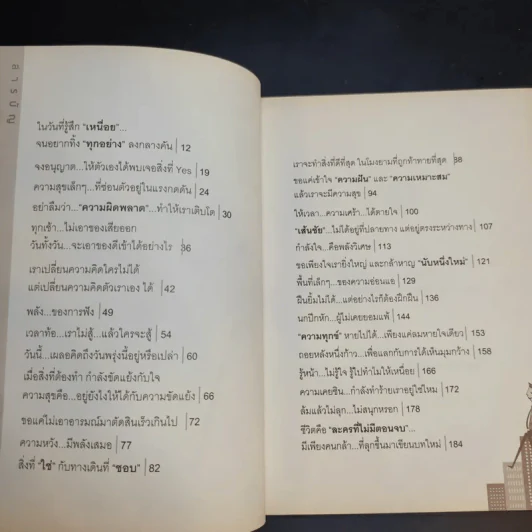 สารบัญ
ในวันที่รู้สึก "เหนื่อย"...
จนอยากทิ้ง "ทุกอย่าง" ลงกลางคัน 12
จงอนุญาต...ให้ตัวเองได้พบเจอสิ่งที่ Yes 19
ความสุขเล็กๆ...ที่ซ่อนตัวอยู่ในแรงกดดัน 24
อย่าลืมว่า..."ความผิดพลาด"...ทำให้เราเติบโต 30
ทุกเช้า...ไม่เอาของเสียออก
วันทั้งวัน...จะเอาของดีเข้าได้อย่างไร 36
เราเปลี่ยนความคิดใครไม่ได้
แต่เปลี่ยนความคิดตัวเราเอง ได้ 42
พลัง...ของการฟัง 49
เวลาท้อ...เราไม่สู้...แล้วใครจะสู้ 54
วันนี้...เผลอคิดถึงวันพรุ่งนี้อยู่หรือเปล่า 60
เมื่อสิ่งที่ต้องทำ กำลังขัดแย้งกับใจ
ความสุขคือ...อยู่ยังไงให้ได้กับความขัดแย้ง 66
ขอแค่ไม่เอาอารมณ์มาตัดสินเร็วเกินไป 72
ความหวัง...มีพลังเสมอ 77
สิ่งที่ "ใช่" กับทางเดินที่ "ชอบ" 82
เราจะทำสิ่งที่ดีที่สุด ในโมงยามที่ถูกท้าทายที่สุด 88
ขอแค่เข้าใจ "ความฝัน" และ "ความเหมาะสม"
แล้วเราจะมีความสุข 94
ให้เวลา...ความเศร้า...ได้ตายใจ 100
"เส้นชัย"...ไม่ได้อยู่ที่ปลายทาง แต่อยู่ตรงระหว่างทาง 107
กำลังใจ...คือพลังวิเศษ 113
ขอเพียงใจเรายิ่งใหญ่ และกล้าหาญ "นับหนึ่งใหม่" 121
พื้นที่เล็กๆ...ของความอ่อนแอ 129
ฝืนยิ้มไม่ได้...แต่อย่างไรก็ต้องฝึกฝืน 136
นกปีกหัก...ผู้ไม่เคยยอมแพ้ 144
"ความทุกข์" หายไปได้...เพียงแค่ลมหายใจเดียว 153
ถอยหลังหนึ่งก้าว...เพื่อแลกกับการได้เห็นมุมกว้าง 158
รู้หน้า...ไม่รู้ใจ รู้ไปทำไมให้เหนื่อย 166
ความเคยชิน...กำลังทำร้ายเราอยู่ใช่ไหม 172
ล้มแล้วไม่ลุก...ไม่สนุกหรอก 178
ชีวิตคือ "ละครที่ไม่มีตอนจบ"...
มีเพียงคนกล้า...ที่ลุกขึ้นมาเขียนบทใหม่ 184